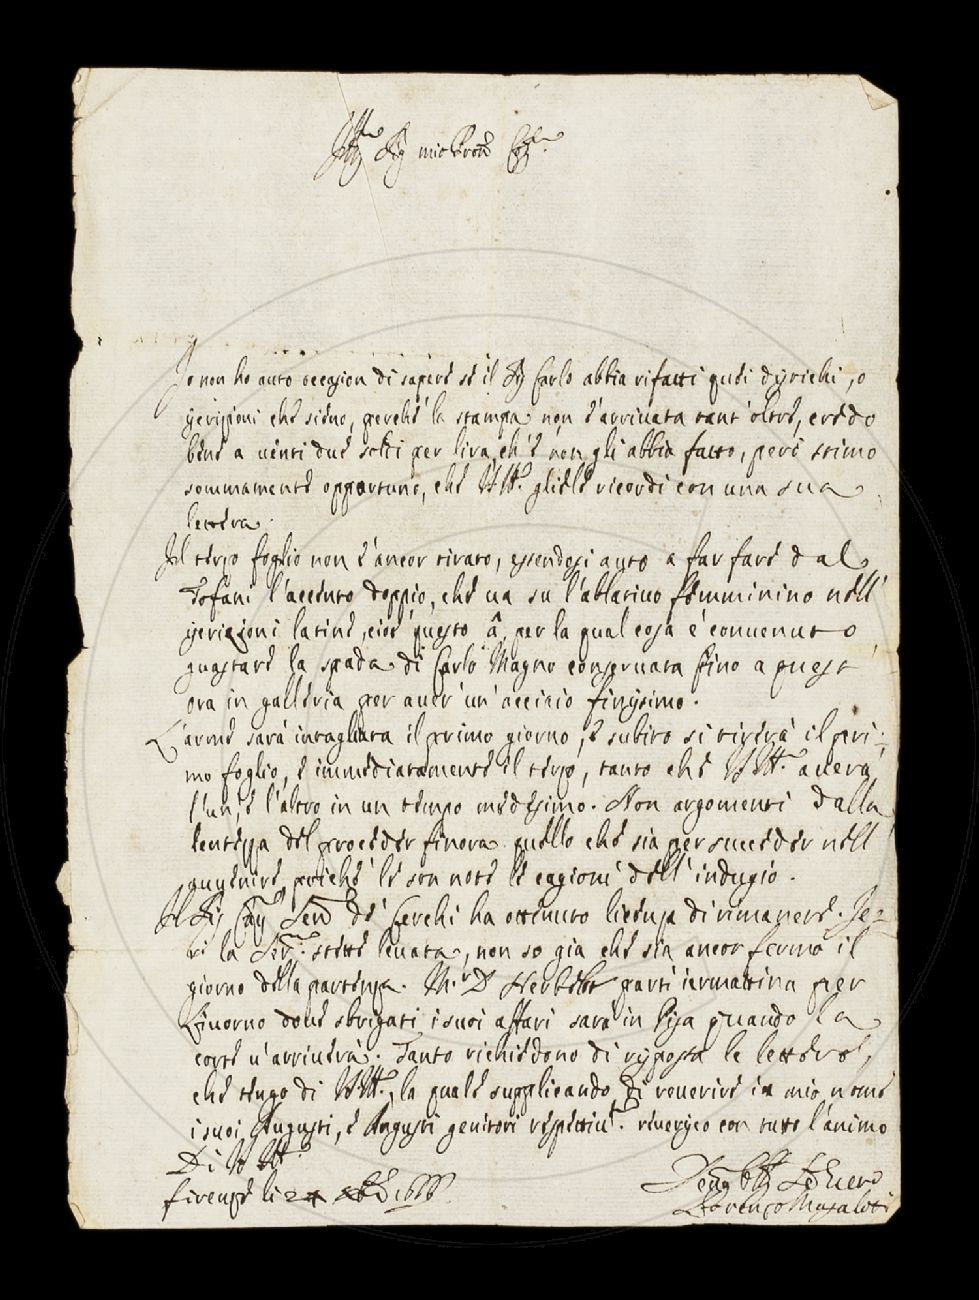 Ill.mo Sig. mio Pron Col.mo
Io non ho auto occasion di sapere se il Sig. Carlo abbia rifatti quei dispichi, o
scrizioni che sieno, perche' la stampa non è arrivata tant'oltre, credo
bene a venti due soldi per lira, ch'è non gli abbia fatto, però stimo
sommamente opportuno, che V.S. Ill. gliele ricordi con una sua
lettera.
Il terzo foglio non è ancor tirato, essendosi auto a far fare dal
Tofani l'accento doppio, che va su l'ablativo femminino nell'
iscrizioni latine, cioè questo â, per la qual cosa è convenuto
guastare la spada di Carlo Magno conservata fino a quest'
ora in galleria per aver un'acciaio finissimo.
L'arme sarà intagliata il primo giorno, e subito si tirerà il pri:
mo foglio, e immediatamente il terzo, tanto che V.S. Ill. averà
l'un, e l'altro in un tempo medesimo. Non argomenti dalla
lentezza del proceder finora quello che sia per succeder nell'
avvenire, poiche' le son note le cagioni dell'indugio.
Il Sig. Cav. Sen. de' Cerchi ha ottenuto licenza di rimanere. Ie:
ri la Ser.ma stette levata, non so già che sia ancor fermo il
giorno della partenza. M.r D'Herbelot partì iermattina per
Livorno dove sbrigati i suoi affari sarà in Pisa quando la
corte v'arriverà. Tanto richiedono di risposta le lettere,
che tengo di V.S. Ill., la quale supplicando di reverire in mio nome
i suoi Augusti, e Angusti genitori respettiv.e reverisco con tutto l'animo
Di V.S. Ill.
Firenze li 1666
Devo. Obb. Se. Vero
Lorenzo Magalotti